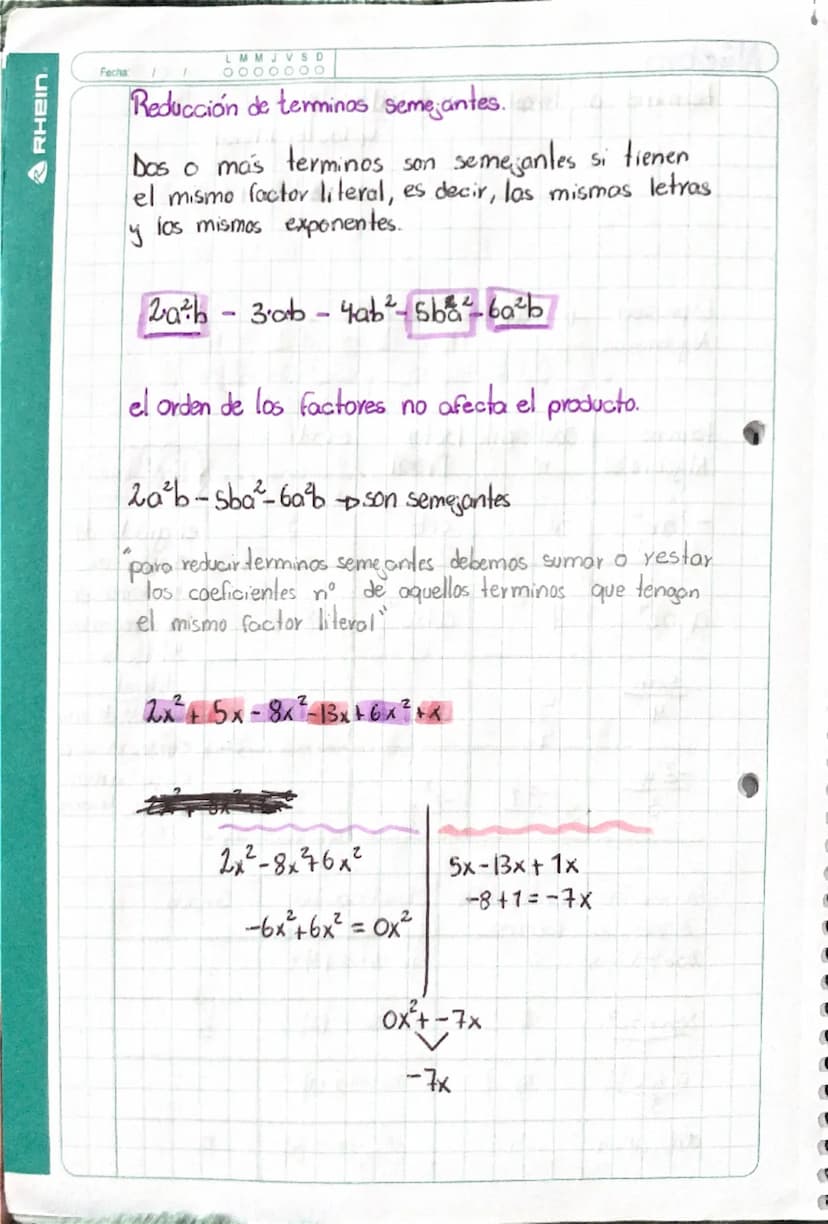 RHEIN
L M M J V S D
Fecha: / /
Reducción de terminos semejantes.
Dos o más terminos son semejantes si tienen
el mismo factor literal, es decir, las mismas letras
y los mismos exponentes.
2·a²·b - 3·ab - 4ab² - 5ba² - 6a²b
el orden de los factores no afecta el producto.
2a²b - 5ba² - 6a²b → son semejantes
"para reducir terminos semejantes debemos sumar o restar
los coeficientes n° de aquellos terminos que tengan
el mismo factor literal"
2x² + 5x - 8x² - 13x + 6x² + x
2x² - 8x² + 6x²
-6x² + 6x² = 0x²
5x - 13x + 1x
-8 + 1 = -7x
0x² + -7x
-7x